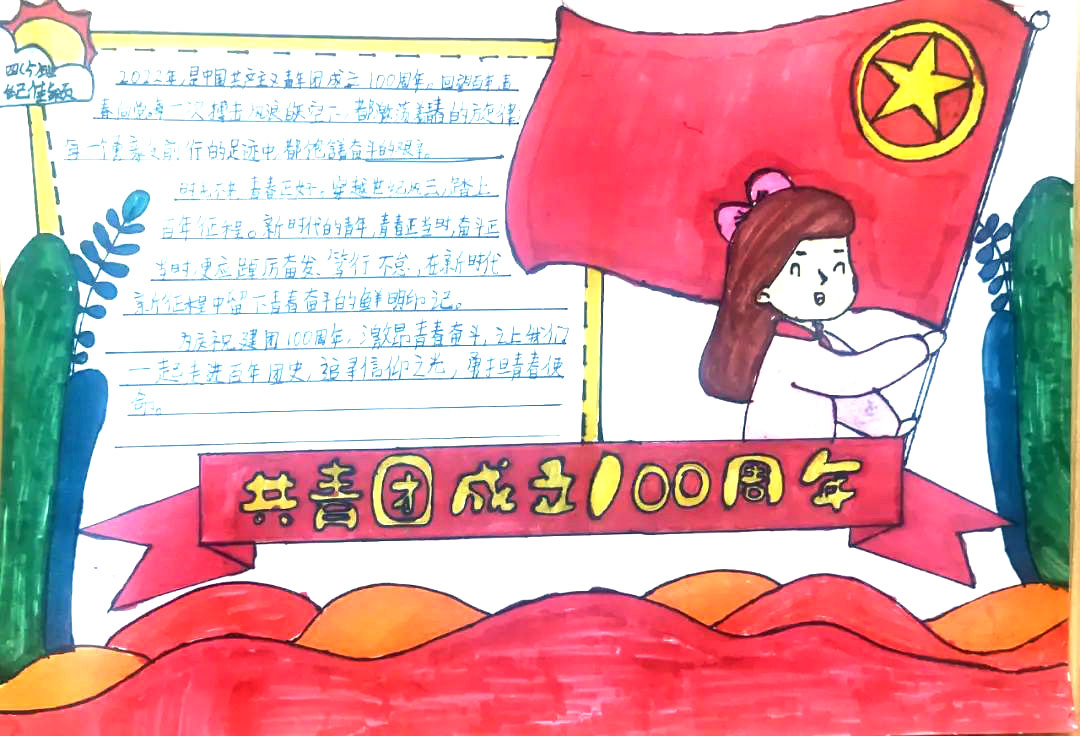 2022年，是中国共产主义青年团成立100周年。回望百年，青
春向党。每一次搏击风浪的天空下，都激荡着青春的旋律；
每一个重要之前行的足迹中，都饱含奋斗的艰辛。
时光不朽，青春正好。穿越世纪风云，踏上
百年征程。新时代的青年，青春正当时，奋斗正
当时，更应踔厉奋发、笃行不怠，在新时代
新征程中留下青春奋斗的鲜明印记。
为庆祝建团100周年，激昂青春奋斗，让我们
一起走进百年团史，追寻信仰之光，勇担青春使
命。
共青团成立100周年